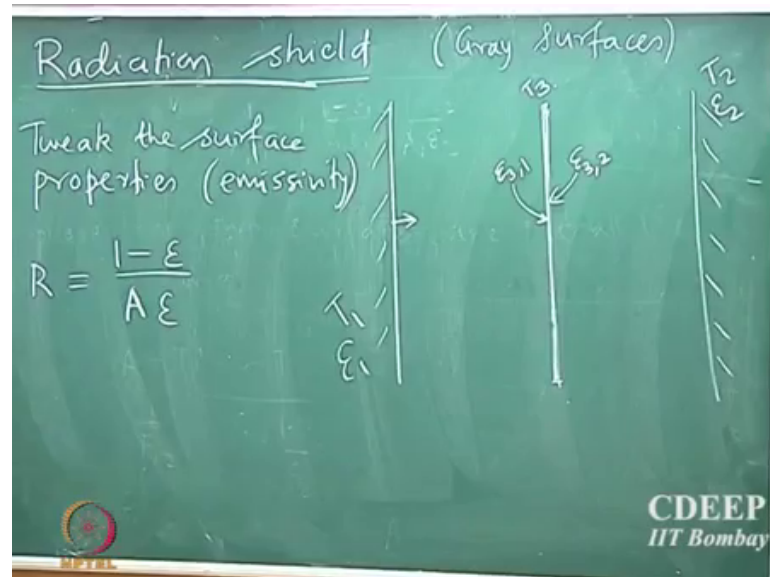 Radiation shield (Gray Surfaces)
Tweak the surface
properties (emissivity)
R ≡ (1 - ε) / (A ε)
T₁
ε₁
T₃
ε₃,₁
ε₃,₂
T₂
ε₂
CDEEP
IIT Bombay
NPTEL